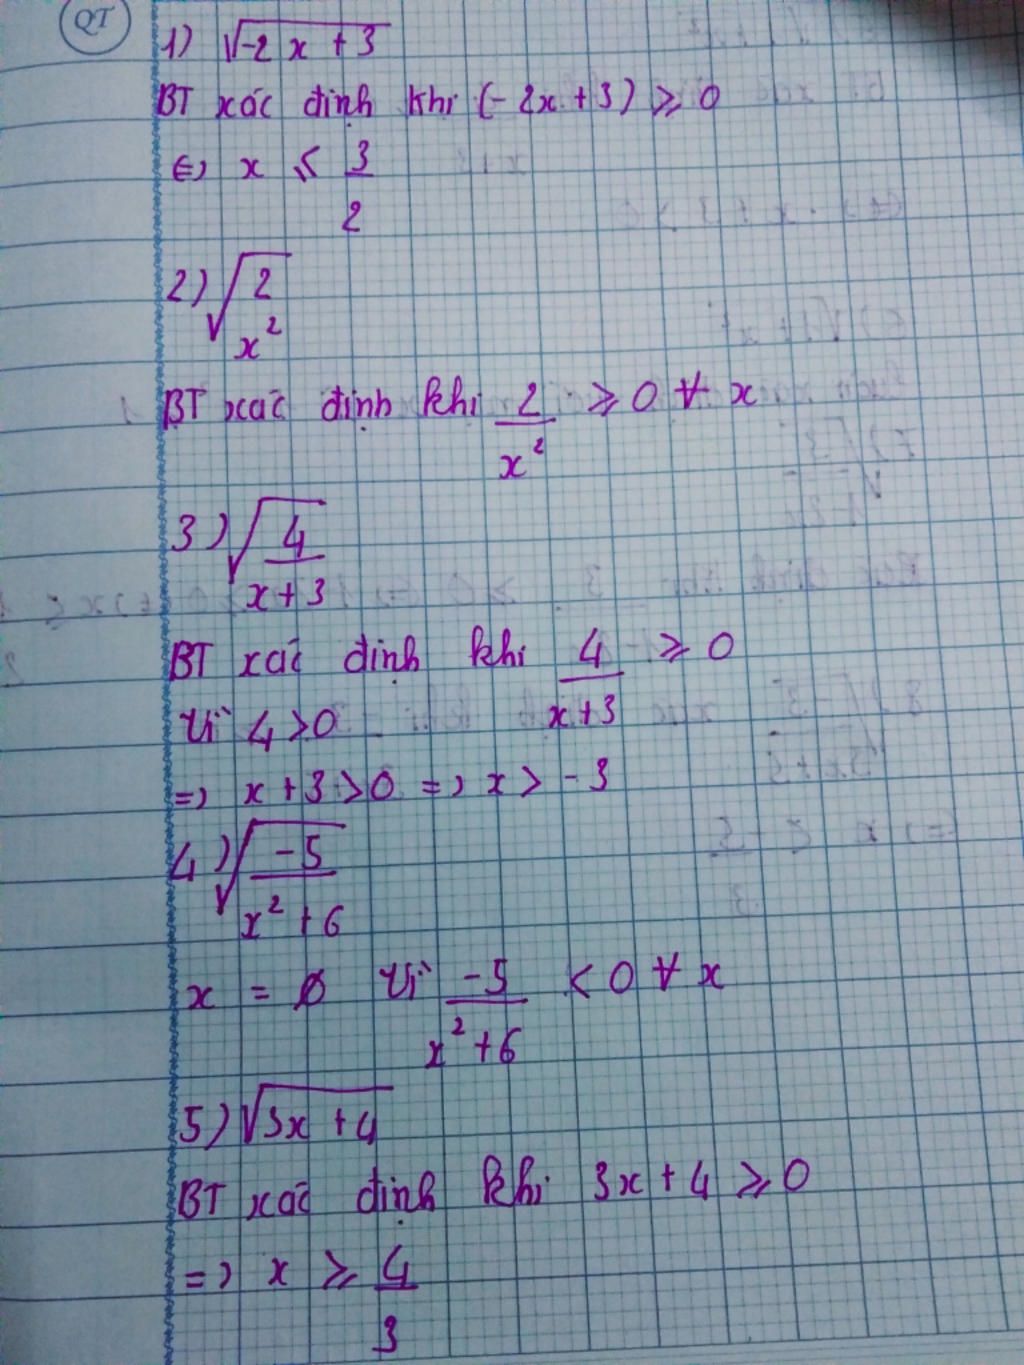 QT
1) √-2x + 3
BT xác định khi (-2x + 3) ⩾ 0
⇔ x ⩽ 3/2
2) √2/x²
BT xác định khi 2/x² ⩾ 0 ∀ x
3) √4/x+3
BT xác định khi 4/x+3 ⩾ 0
Vì 4 > 0
=> x + 3 > 0 => x > -3
4) √-5/x² + 6
x = ∅ Vì -5/x² + 6 < 0 ∀ x
5) √3x + 4
BT xác định khi 3x + 4 ⩾ 0
=> x ⩾ 4/3